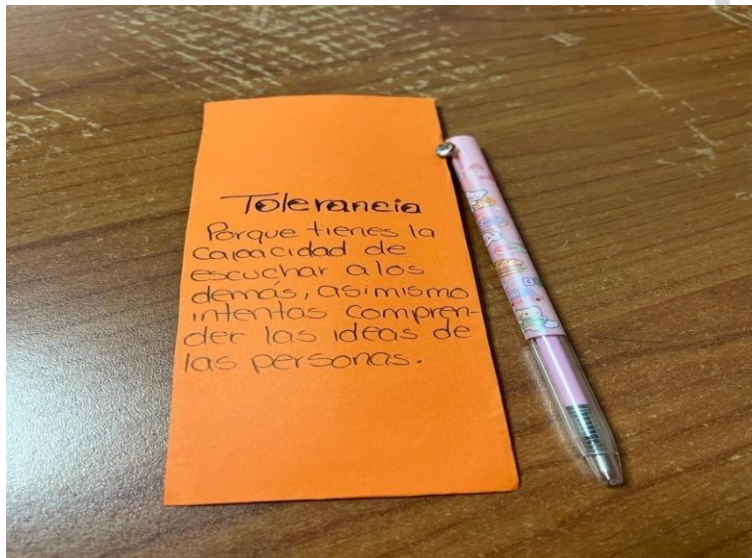 Tolerancia
Porque tienes la
capacidad de
escuchar a los
demás, asimismo
intentas compren-
der las ideas de
las personas.